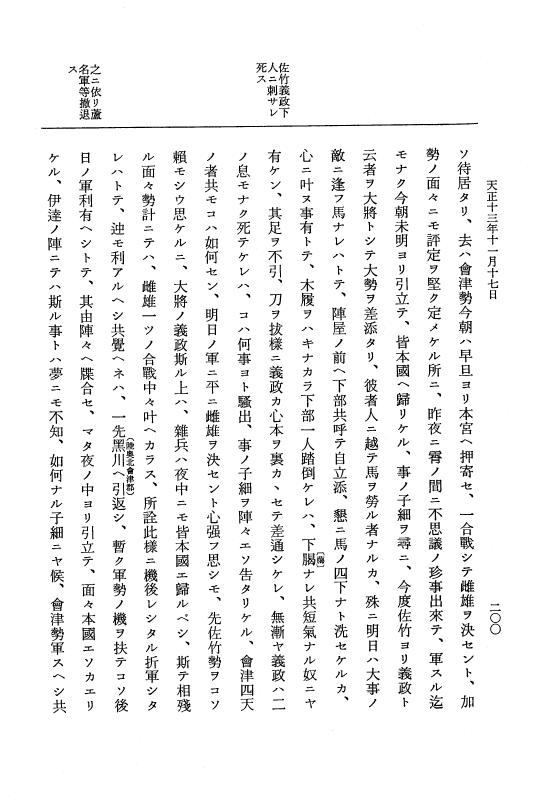 天正十三年十一月十七日
二〇〇
佐竹義政下
人ニ刺サレ
死ス
之ニ依リ蘆
名軍等撤退
ス
ソ待居タリ、去ハ會津勢今朝ハ早旦ヨリ本宮ヘ押寄セ、一合戰シテ雌雄ヲ決セント、加
勢ノ面々ニモ評定ヲ堅ク定メケル所ニ、昨夜ニ霄ノ間ニ不思議ノ珍事出來テ、軍スル迄
モナク今朝未明ヨリ引立テ、皆本國ヘ歸リケル、事ノ子細ヲ尋ニ、今度佐竹ヨリ義政ト
云者ヲ大將トシテ大勢ヲ差添タリ、彼者人ニ越テ馬ヲ勞ル者ナルカ、殊ニ明日ハ大事ノ
敵ニ逢フ馬ナレハトテ、陣屋ノ前ヘ下部共呼テ自立添、懇ニ馬ノ四下ナト洗セケルカ、
心ニ叶ヌ事有トテ、木履ヲハキナカラ下部一人踏倒ケレハ、下臈ナレ共短氣ナル奴ニヤ
有ケン、其足ヲ不引、刀ヲ拔樣ニ義政カ心本ヲ裏カヽセテ差通シケレ、無漸ヤ義政ハ二
ノ息モナク死テケレハ、コハ何事ヨト騷出、事ノ子細ヲ陣々エソ告タリケル、會津四天
ノ者共モコハ如何セン、明日ノ軍ニ平ニ雌雄ヲ決セント心强フ思シモ、先佐竹勢ヲコソ
賴モシウ思ケルニ、大將ノ義政斯ル上ハ、雜兵ハ夜中ニモ皆本國エ歸ルベシ、斯テ相殘
ル面々勢計ニテハ、雌雄一ツノ合戰中々叶ヘカラス、所詮此樣ニ機後レシタル折軍シタ
レハトテ、迚モ利アルヘシ共覺ヘネハ、一先黑川（陸奧北會津郡）ヘ引返シ、暫ク軍勢ノ機ヲ扶テコソ後
日ノ軍利有ヘシトテ、其由陣々ヘ牒合セ、マタ夜ノ中ヨリ引立テ、面々本國エソカエリ
ケル、伊達ノ陣ニテハ斯ル事トハ夢ニモ不知、如何ナル子細ニヤ候、會津勢軍スヘシ共